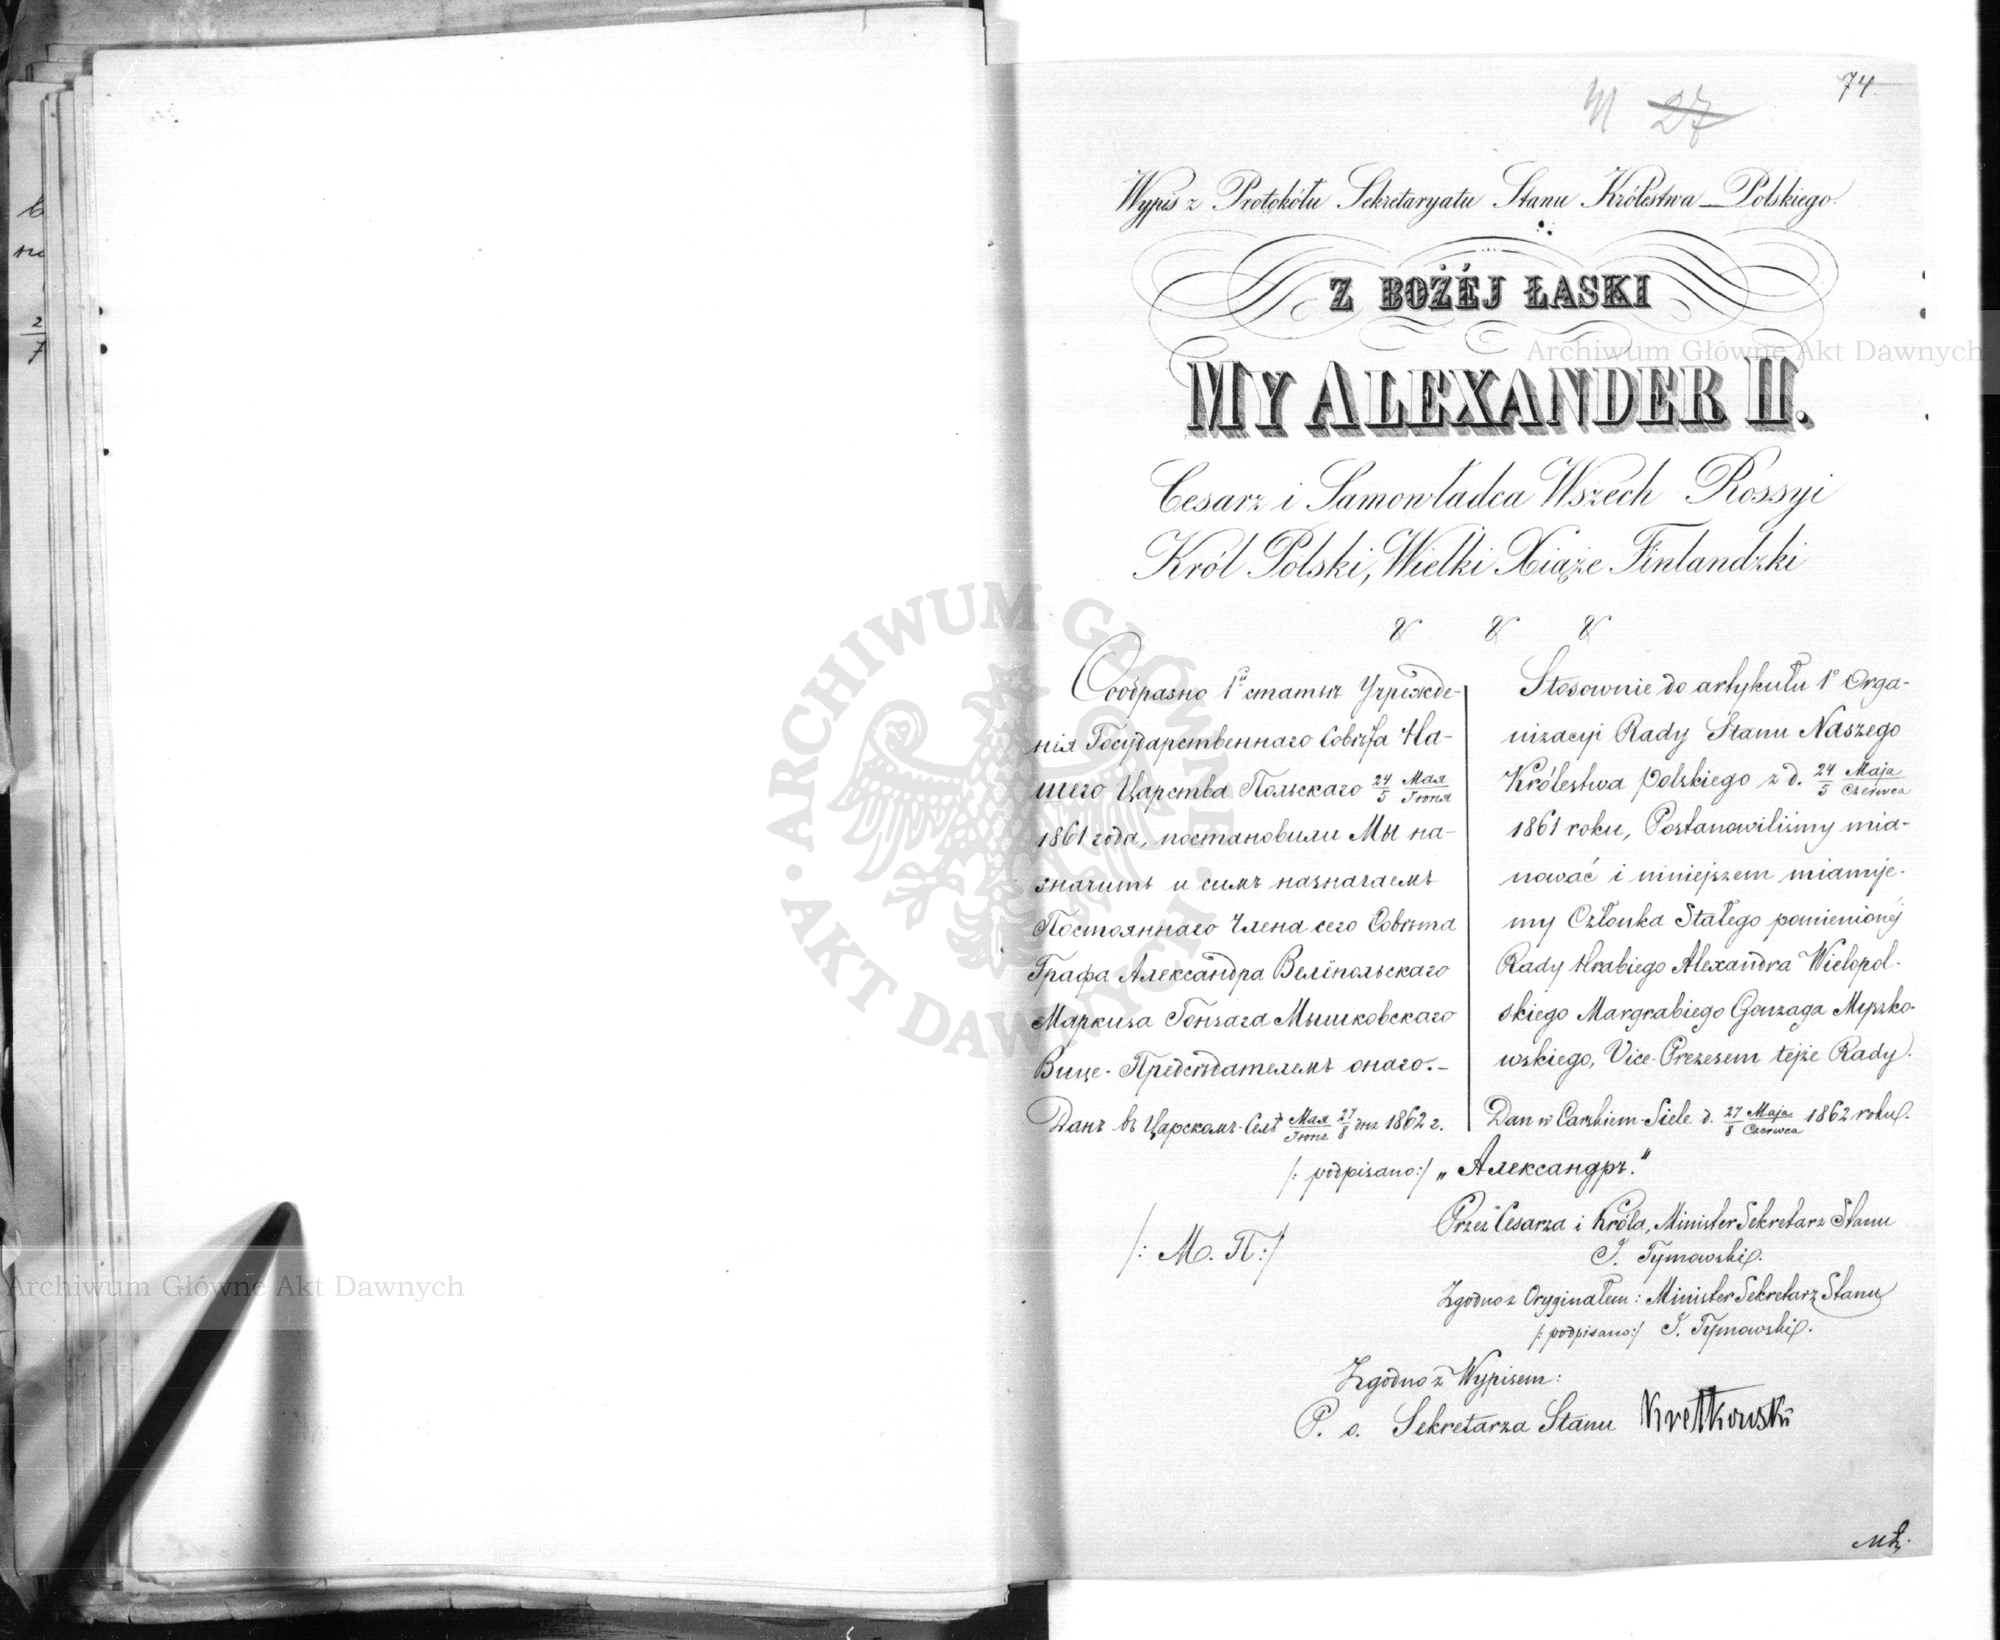 74
27
Wypis z Protokółu Sekretaryatu Stanu Królestwa Polskiego.
Z BOŻÉJ ŁASKI
MY ALEXANDER II.
Cesarz i Samowładca Wszech Rossyi
Król Polski, Wielki Xiąże Finlandzki
& & &
Сообразно 1й статьѣ Учрежде-
нія Государственнаго Совѣта На-
шего Царства Польскаго 24/5 Мая/Іюня
1861 года, постановили Мы на-
значить и симъ назначаемъ
Постояннаго Члена сего Совѣта
Графа Александра Велёпольскаго
Маркиза Гонзага Мышковскаго
Вице-Предсѣдателемъ онаго.–
Данъ въ Царскомъ-Селѣ Мая/Іюня 27/8 дня 1862 г.
Stosownie do artykułu 1o Orga-
nizacyi Rady Stanu Naszego
Królestwa Polskiego z d. 24/5 Maja/Czerwca
1861 roku, Postanowiliśmy mia-
nować i niniejszem mianuje-
my Członka Stałego pomienionéj
Rady Hrabiego Alexandra Wielopol-
skiego Margrabiego Gonzaga Myszko-
wskiego, Vice-Prezesem tejże Rady.
Dan w Carskiem-Siele d. 27/8 Maja/Czerwca 1862 roku.
/: podpisano:/ „Александръ.“
/: М. П:/
Przez Cesarza i Króla, Minister Sekretarz Stanu
J. Tymowski.
Zgodno z Oryginałem: Minister Sekretarz Stanu
/: podpisano:/ J. Tymowski.
Zgodno z Wypisem:
P. o. Sekretarza Stanu Kretkowski
Archiwum Główne Akt Dawnych
Archiwum Główne Akt Dawnych
ARCHIWUM GŁÓWNE AKT DAWNYCH